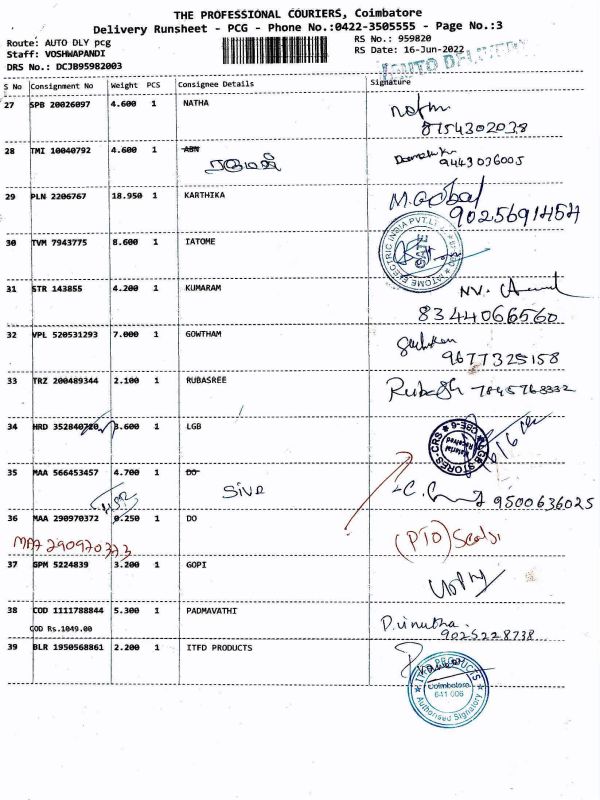 THE PROFESSIONAL COURIERS, Coimbatore
Delivery Runsheet - PCG - Phone No.:0422-3505555 - Page No.:3
Route: AUTO DLY pcg
RS No.: 959820
Staff: VOSHWAPANDI
RS Date: 16-Jun-2022
DRS No.: DCJB95982003
AUTO DELIVERY
S No Consignment No Weight PCS Consignee Details Signature
27 SPB 20026097 4.600 1 NATHA
8154302038
28 TMI 10040792 4.600 1 ABN
9443036005
29 PLN 2206767 18.950 1 KARTHIKA M.Gobal
9025691454
30 TVM 7943775 8.600 1 IATOME
31 STR 143855 4.200 1 KUMARAM
8344066560
32 VPL 520531293 7.000 1 GOWTHAM
9677325158
33 TRZ 200489344 2.100 1 RUBASREE
34 HRD 352840720 3.600 1 LGB
LGB STORES-CRS CBE-6
Material Received
35 MAA 566453457 4.700 1 DO
Siva
9500636025
36 MAA 290970372 0.250 1 DO
MAA 290970373
(PTO)
37 GPM 5224839 3.200 1 GOPI
38 COD 1111788844 5.300 1 PADMAVATHI
COD Rs.1049.00
9025228738
39 BLR 1950568861 2.200 1 ITFD PRODUCTS
ITFD PRODUCTS
Coimbatore
641 006
Authorised Signatory